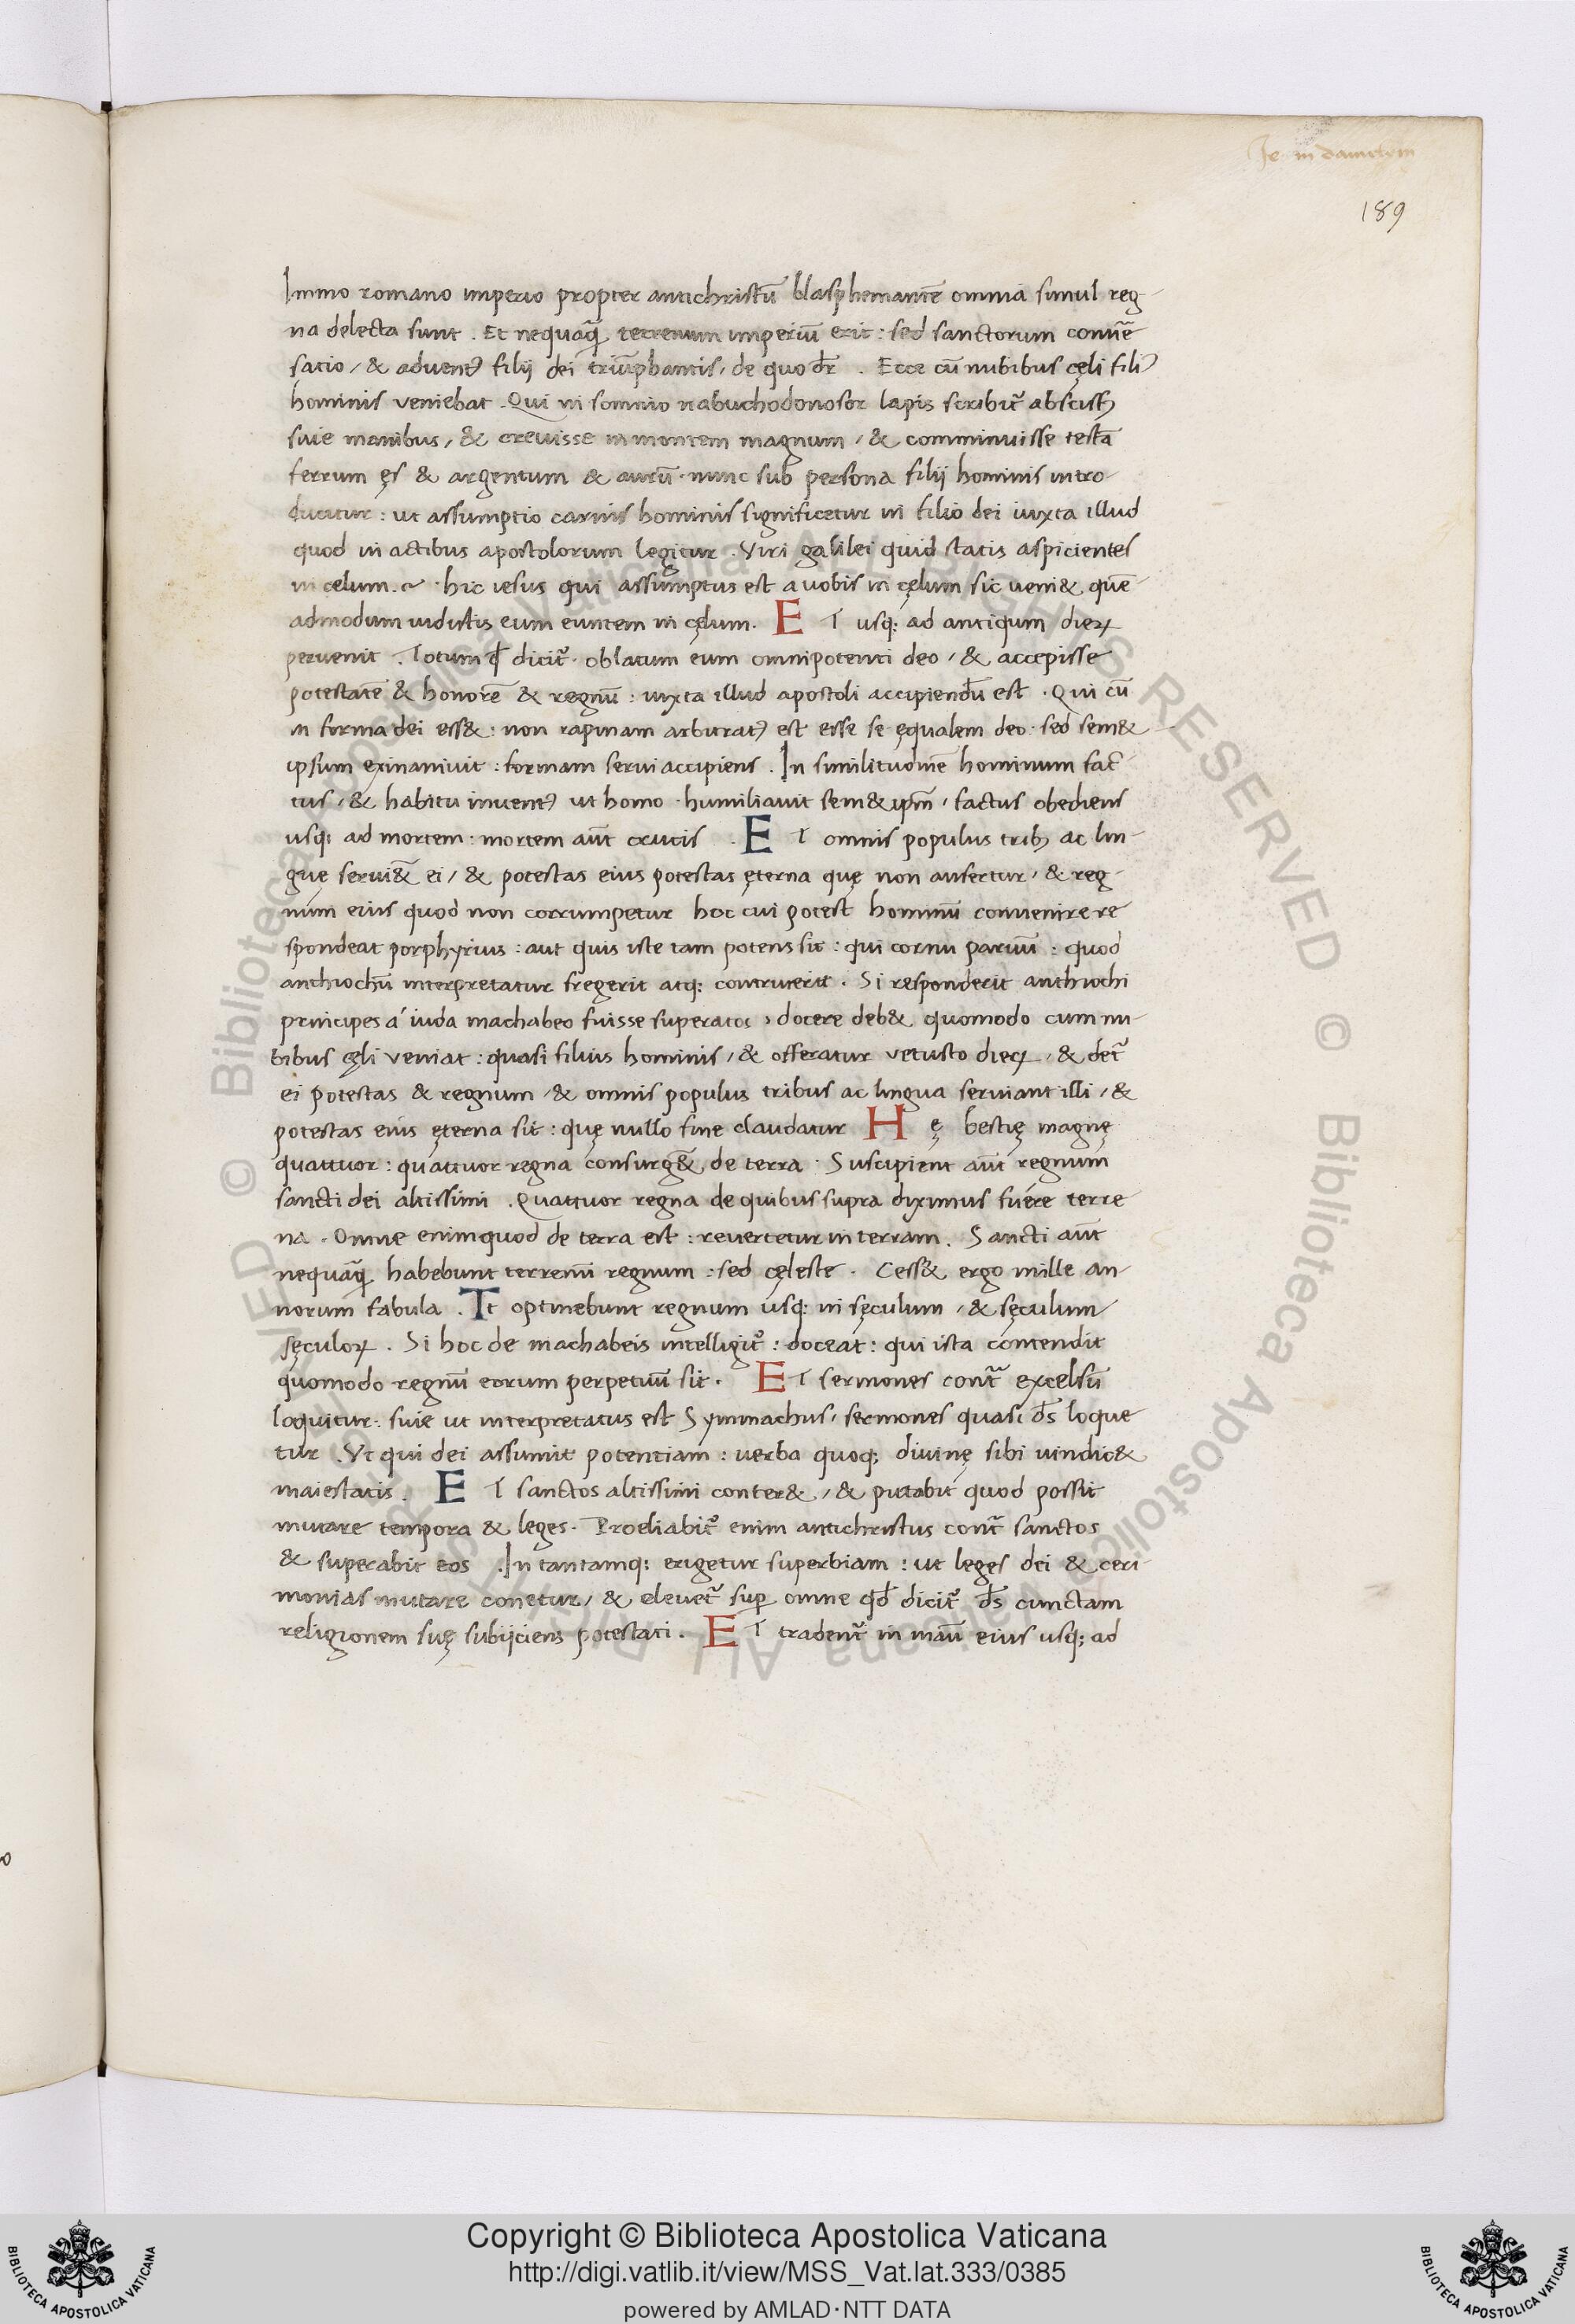 Ie in danielem
189
Immo romano imperio propter antichristū blasphemantē omnia simul reg-
na delecta sunt . Et nequaq̄ terrenum imperiū erit : sed sanctorum conuē
satio / & aduentꝰ filij dei triūphantis / de quo dr̄ . Ecce cū nubibus cęli filiꝰ
hominis veniebat . Qui in somnio nabuchodonosor lapis scribit᷑ abscissꝰ
siue manibus / & creuisse in montem magnum / & comminuisse testā
ferrum ęs & argentum & aurū · nunc sub persona filij hominis intro-
ducitur : ut assumptio carnis hominis significetur in filio dei iuxta illud
quod in actibus apostolorum legitur . Viri galilei quid statis aspicientes
in celum . hic iesus qui assumptus est a uobis in cęlum sic ueni& quē
admodum uidistis eum euntem in cęlum . E T usq; ad antiqum dieꝝ
peruenit . Totum qđ dicit᷑ · oblatum eum omnipotenti deo / & accepisse
potestatē & honorē & regnū : iuxta illud apostoli accipiendū est . Qui cū
in forma dei ess& : non rapinam arbitratꝰ est esse se ęqualem deo · sed sem&
ipsum exinaniuit : formam serui accipiens . In similitudinē hominum fac-
tus / & habitu inuentꝰ ut homo · humiliauit sem& ipm̄ / factus obediens
usq; ad mortem : mortem aūt crucis . E T omnis populus tribꝰ ac lin-
guę serui&̄ ei / & potestas eius potestas ęterna quę non aufertur / & reg-
num eius quod non corrumpetur hoc cui potest hominū conuenire re
spondeat porphyrius : aut quis iste tam potens sit : qui cornu paruū : quod
anthiochū interpretatur fregerit atq; contriuerit . Si responderit anthiochi
principes á iuda machabeo fuisse superatos , docere deb& quomodo cum nu-
bibus cęli veniat : quasi filius hominis / & offeratur vetusto dieꝝ / & det᷑
ei potestas & regnum / & omnis populus tribus ac lingua seruiant illi / &
potestas eius ęterna sit : quę nullo fine claudatur H ę bestię magnę
quattuor : quattuor regna consurg&̄ de terra . Suscipient aūt regnum
sancti dei altissimi . Quattuor regna de quibus supra diximus fuére terre
na . Omne enim quod de terra est : reuertetur in terram . Sancti aūt
nequaq̄ habebunt terrenū regnum : sed cęleste . Cess& ergo mille an-
norum fabula . Tt optinebunt regnum usq; in sęculum / & sęculum
sęculoꝝ . Si hoc de machabeis intelligit᷑ : doceat : qui ista contendit
quomodo regnū eorum perpetuū sit . E T sermones cont᷑ excelsū
loquitur . siue ut interpretatus est Symmachus / sermones quasi d̄s loque
tur . Vt qui dei assumit potentiam : uerba quoq; diuinę sibi uindic&
maiestatis . E T sanctos altissimi conter& / & putabit quod possit
mutare tempora & leges . Proeliabit᷑ enim antichristus cont᷑ sanctos
& superabit eos . In tantamq; erigetur superbiam : ut leges dei & ceri-
monias mutare conetur / & eleuet᷑ sup̄ omne qđ dicit᷑ d̄s cunctam
religionem suę subijciens potestati . E T tradent᷑ in manū eius usq; ad
Copyright © Biblioteca Apostolica Vaticana
http://digi.vatlib.it/view/MSS_Vat.lat.333/0385
powered by AMLAD·NTT DATA